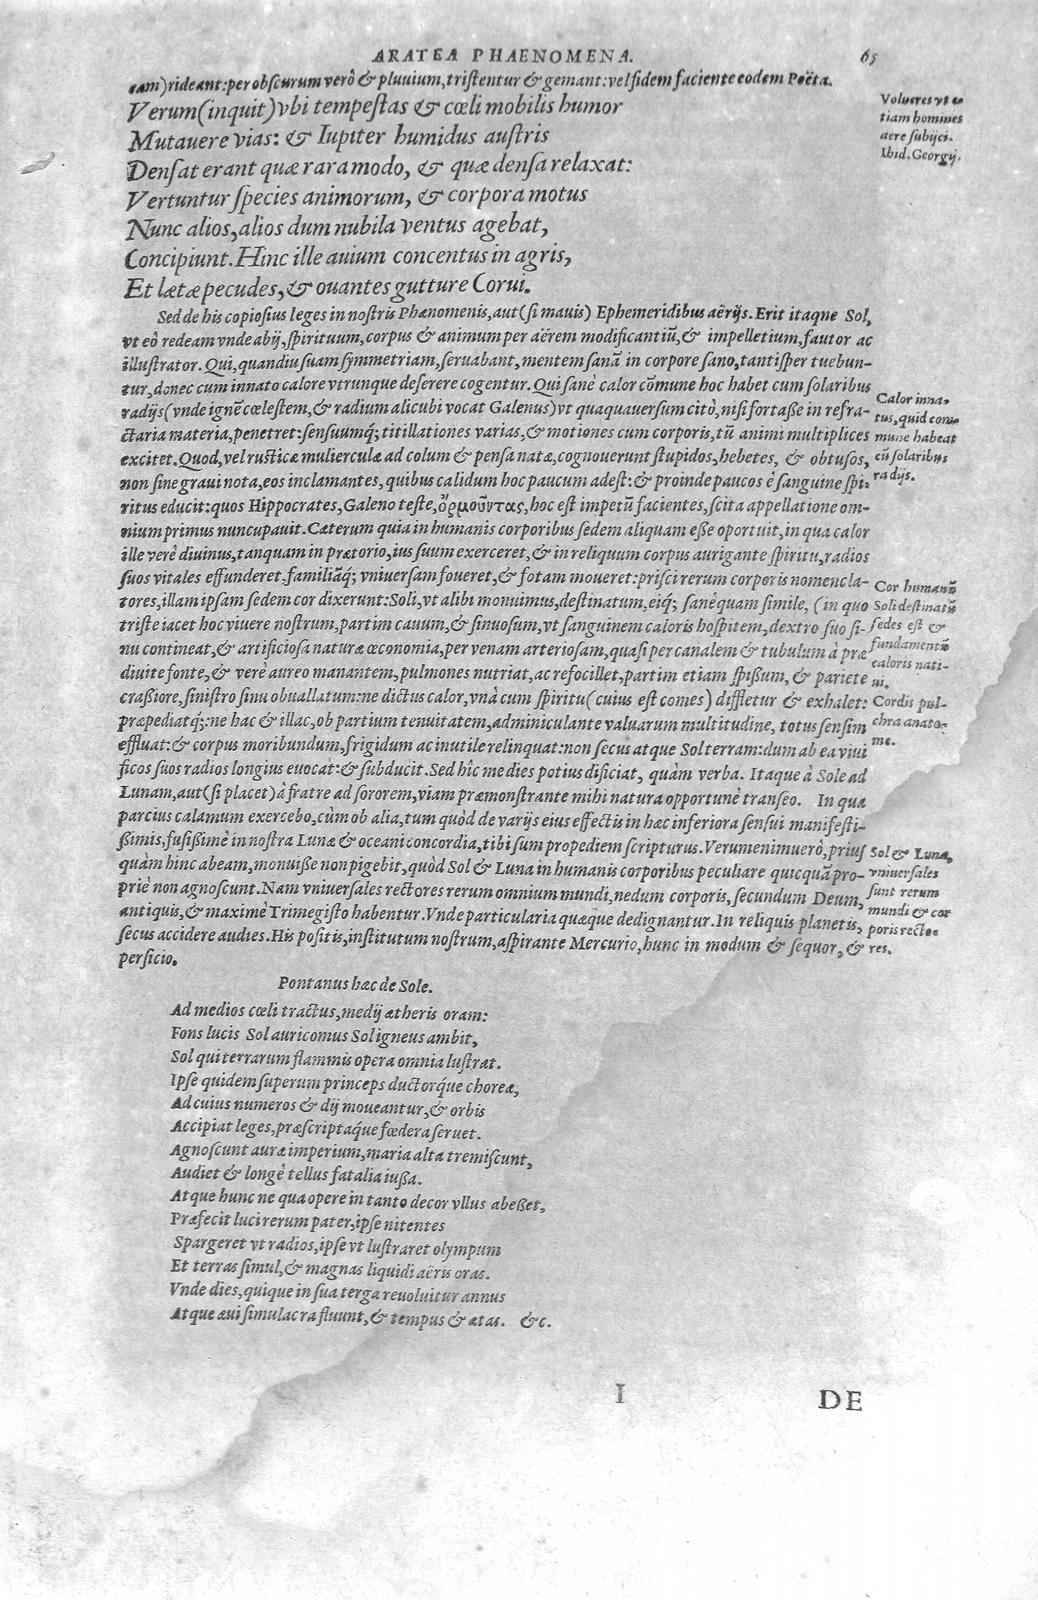 ARATEA PHAENOMENA. 65
eam) rideant: per obscurum verò & pluuium, tristentur & gemant: vel fidem faciente eodem Poëta.
Verum (inquit) vbi tempestas & cœli mobilis humor
Mutauere vias: & Iupiter humidus austris
Densat erant quæ rara modo, & quæ densa relaxat:
Vertuntur species animorum, & corpora motus
Nunc alios, alios dum nubila ventus agebat,
Concipiunt. Hinc ille auium concentus in agris,
Et lætæ pecudes, & ouantes gutture Corui.
Volucres vt e-
tiam homines
aere subijci.
Ibid. Georgij.
Sed de his copiosius leges in nostris Phænomenis, aut (si mauis) Ephemeridibus aërijs. Erit itaque Sol,
vt eò redeam vnde abij, spirituum, corpus & animum per aërem modificantiũ, & impelletium, fautor ac
illustrator. Qui, quandiu suam symmetriam, seruabant, mentem sanã in corpore sano, tantisper tuebun-
tur, donec cum innato calore vtrunque deserere cogentur. Qui sanè calor cõmune hoc habet cum solaribus
radijs (vnde ignẽ cœlestem, & radium alicubi vocat Galenus) vt quaquauersum citò, nisi fortaße in refra-
ctaria materia, penetret: sensuumq; titillationes varias, & motiones cum corporis, tũ animi multiplices
excitet. Quod, vel rusticæ mulierculæ ad colum & pensa natæ, cognouerunt stupidos, hebetes, & obtusos,
non sine graui nota, eos inclamantes, quibus calidum hoc paucum adest: & proinde paucos è sanguine spi-
ritus educit: quos Hippocrates, Galeno teste, ὁρμοῦντας, hoc est impetũ facientes, scita appellatione om-
nium primus nuncupauit. Cæterum quia in humanis corporibus sedem aliquam eße oportuit, in qua calor
ille verè diuinus, tanquam in prætorio, ius suum exerceret, & in reliquum corpus aurigante spiritu, radios
suos vitales effunderet, familiãq; vniuersam foueret, & fotam moueret: prisci rerum corporis nomencla-
tores, illam ipsam sedem cor dixerunt: Soli, vt alibi monuimus, destinatum, eiq; sanè quam simile, (in quo
triste iacet hoc viuere nostrum, partim cauum, & sinuosum, vt sanguinem caloris hospitem, dextro suo si-
nu contineat, & artificiosa naturæ œconomia, per venam arteriosam, quasi per canalem & tubulum à præ
diuite fonte, & verè aureo manantem, pulmones nutriat, ac refocillet, partim etiam spißum, & pariete
craßiore, sinistro sinu obuallatum: ne dictus calor, vnà cum spiritu (cuius est comes) diffletur & exhalet:
præpediatq;: ne hac & illac, ob partium tenuitatem, adminiculante valuarum multitudine, totus sensim
effluat: & corpus moribundum, frigidum ac inutile relinquat: non secus atque Sol terram: dum ab ea viui
ficos suos radios longius euocat: & subducit. Sed hîc me dies potius dificiat, quàm verba. Itaque à Sole ad
Lunam, aut (si placet) à fratre ad sororem, viam præmonstrante mihi natura opportunè transeo. In qua
parcius calamum exercebo, cùm ob alia, tum quòd de varijs eius effectis in hæc inferiora sensui manifesti-
ßimis, fusißimè in nostra Lunæ & oceani concordia, tibi sum propediem scripturus. Verum enimuerò, prius
quàm hinc abeam, monuiße non pigebit, quòd Sol & Luna in humanis corporibus peculiare quicquã pro-
priè non agnoscunt. Nam vniuersales rectores rerum omnium mundi, nedum corporis, secundum Deum,
antiquis, & maximè Trimegisto habentur. Vnde particularia quæque dedignantur. In reliquis planetis,
secus accidere audies. His positis, institutum nostrum, aspirante Mercurio, hunc in modum & sequor, &
persicio.
Calor inna-
tus, quid com-
mune habeat
cũ solaribus
radijs.
Cor humanũ
Soli destinatũ
sedes est &
fundamentũ
caloris nati-
ui.
Cordis pul-
chra anato-
me.
Sol & Luna,
vniuersales
sunt rerum
mundi & cor
poris recto-
res.
Pontanus hæc de Sole.
Ad medios cœli tractus, medij ætheris oram:
Fons lucis Sol auricomus Sol igneus ambit,
Sol qui terrarum flammis opera omnia lustrat.
Ipse quidem superum princeps ductorq́ue choreæ,
Ad cuius numeros & dij moueantur, & orbis
Accipiat leges, præscriptaq́ue fœdera seruet.
Agnoscunt auræ imperium, maria alta tremiscunt,
Audiet & longè tellus fatalia iußa.
Atque hunc ne qua opere in tanto decor vllus abeßet,
Præfecit luci rerum pater, ipse nitentes
Spargeret vt radios, ipse vt lustraret olympum
Et terras simul, & magnas liquidi aëris oras.
Vnde dies, quique in sua terga reuoluitur annus
Atque æui simulacra fluunt, & tempus & ætas. &c.
I DE